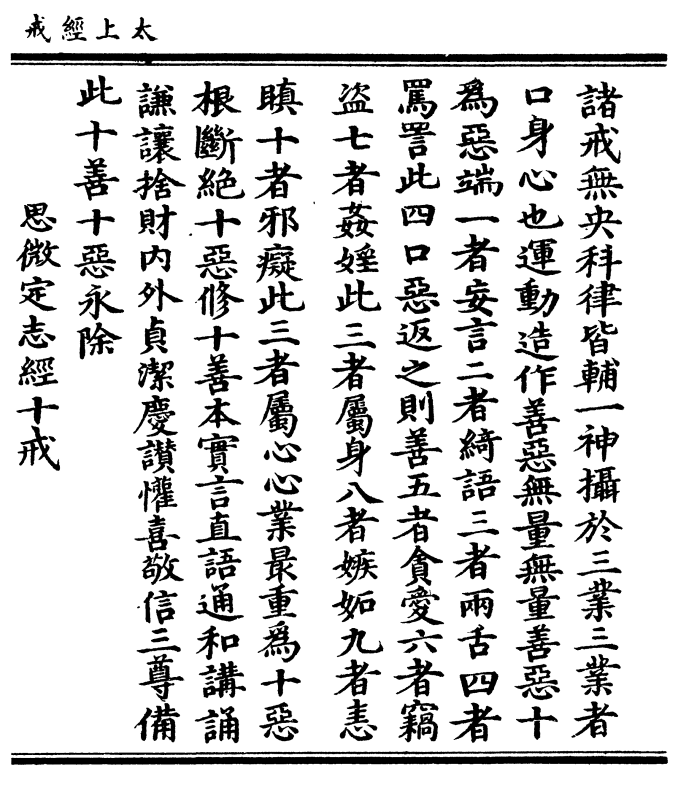 太上經戒
諸戒無央科律皆輔一神攝於三業三業者
口身心也運動造作善惡無量無量善惡十
為惡端一者妄言二者綺語三者兩舌四者
罵詈此四口惡返之則善五者貪愛六者竊
盜七者姦婬此三者屬身八者嫉妬九者恚
瞋十者邪癡此三者屬心心業最重為十惡
根斷絕十惡修十善本實言直語通和講誦
謙讓捨財內外貞潔慶讚懽喜敬信三尊備
此十善十惡永除
思微定志經十戒